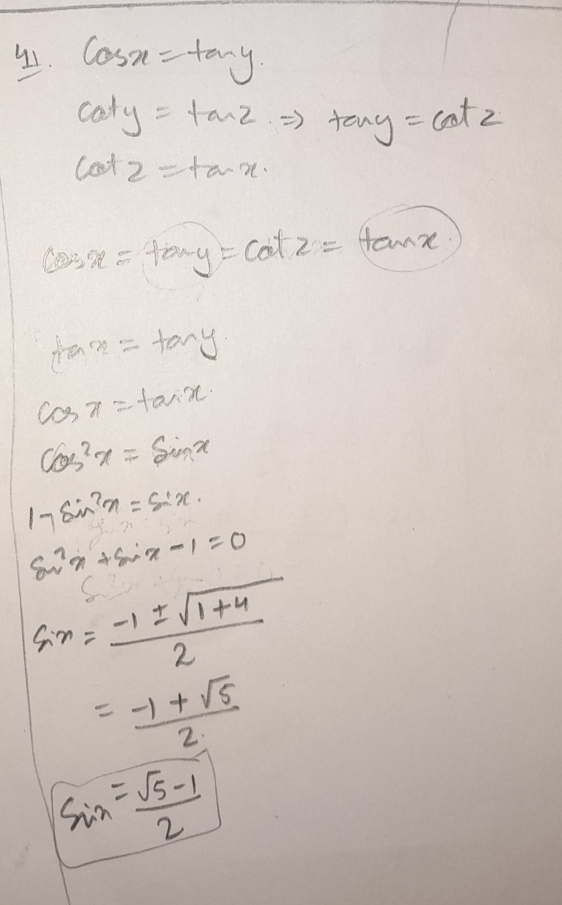 41. Cosx = tany.
Coty = tanz. ⇒ tany = cotz
Cotz = tanx.
Cosx = tany = Cotz = tanx.
tanx = tany
Cosx = tanx.
Cos²x = Sinx
1 - Sin²x = Sinx.
Sin²x + Sinx - 1 = 0
Sinx = (-1 ± √(1+4))/2
= (-1 + √5)/2.
Sinx = (√5-1)/2